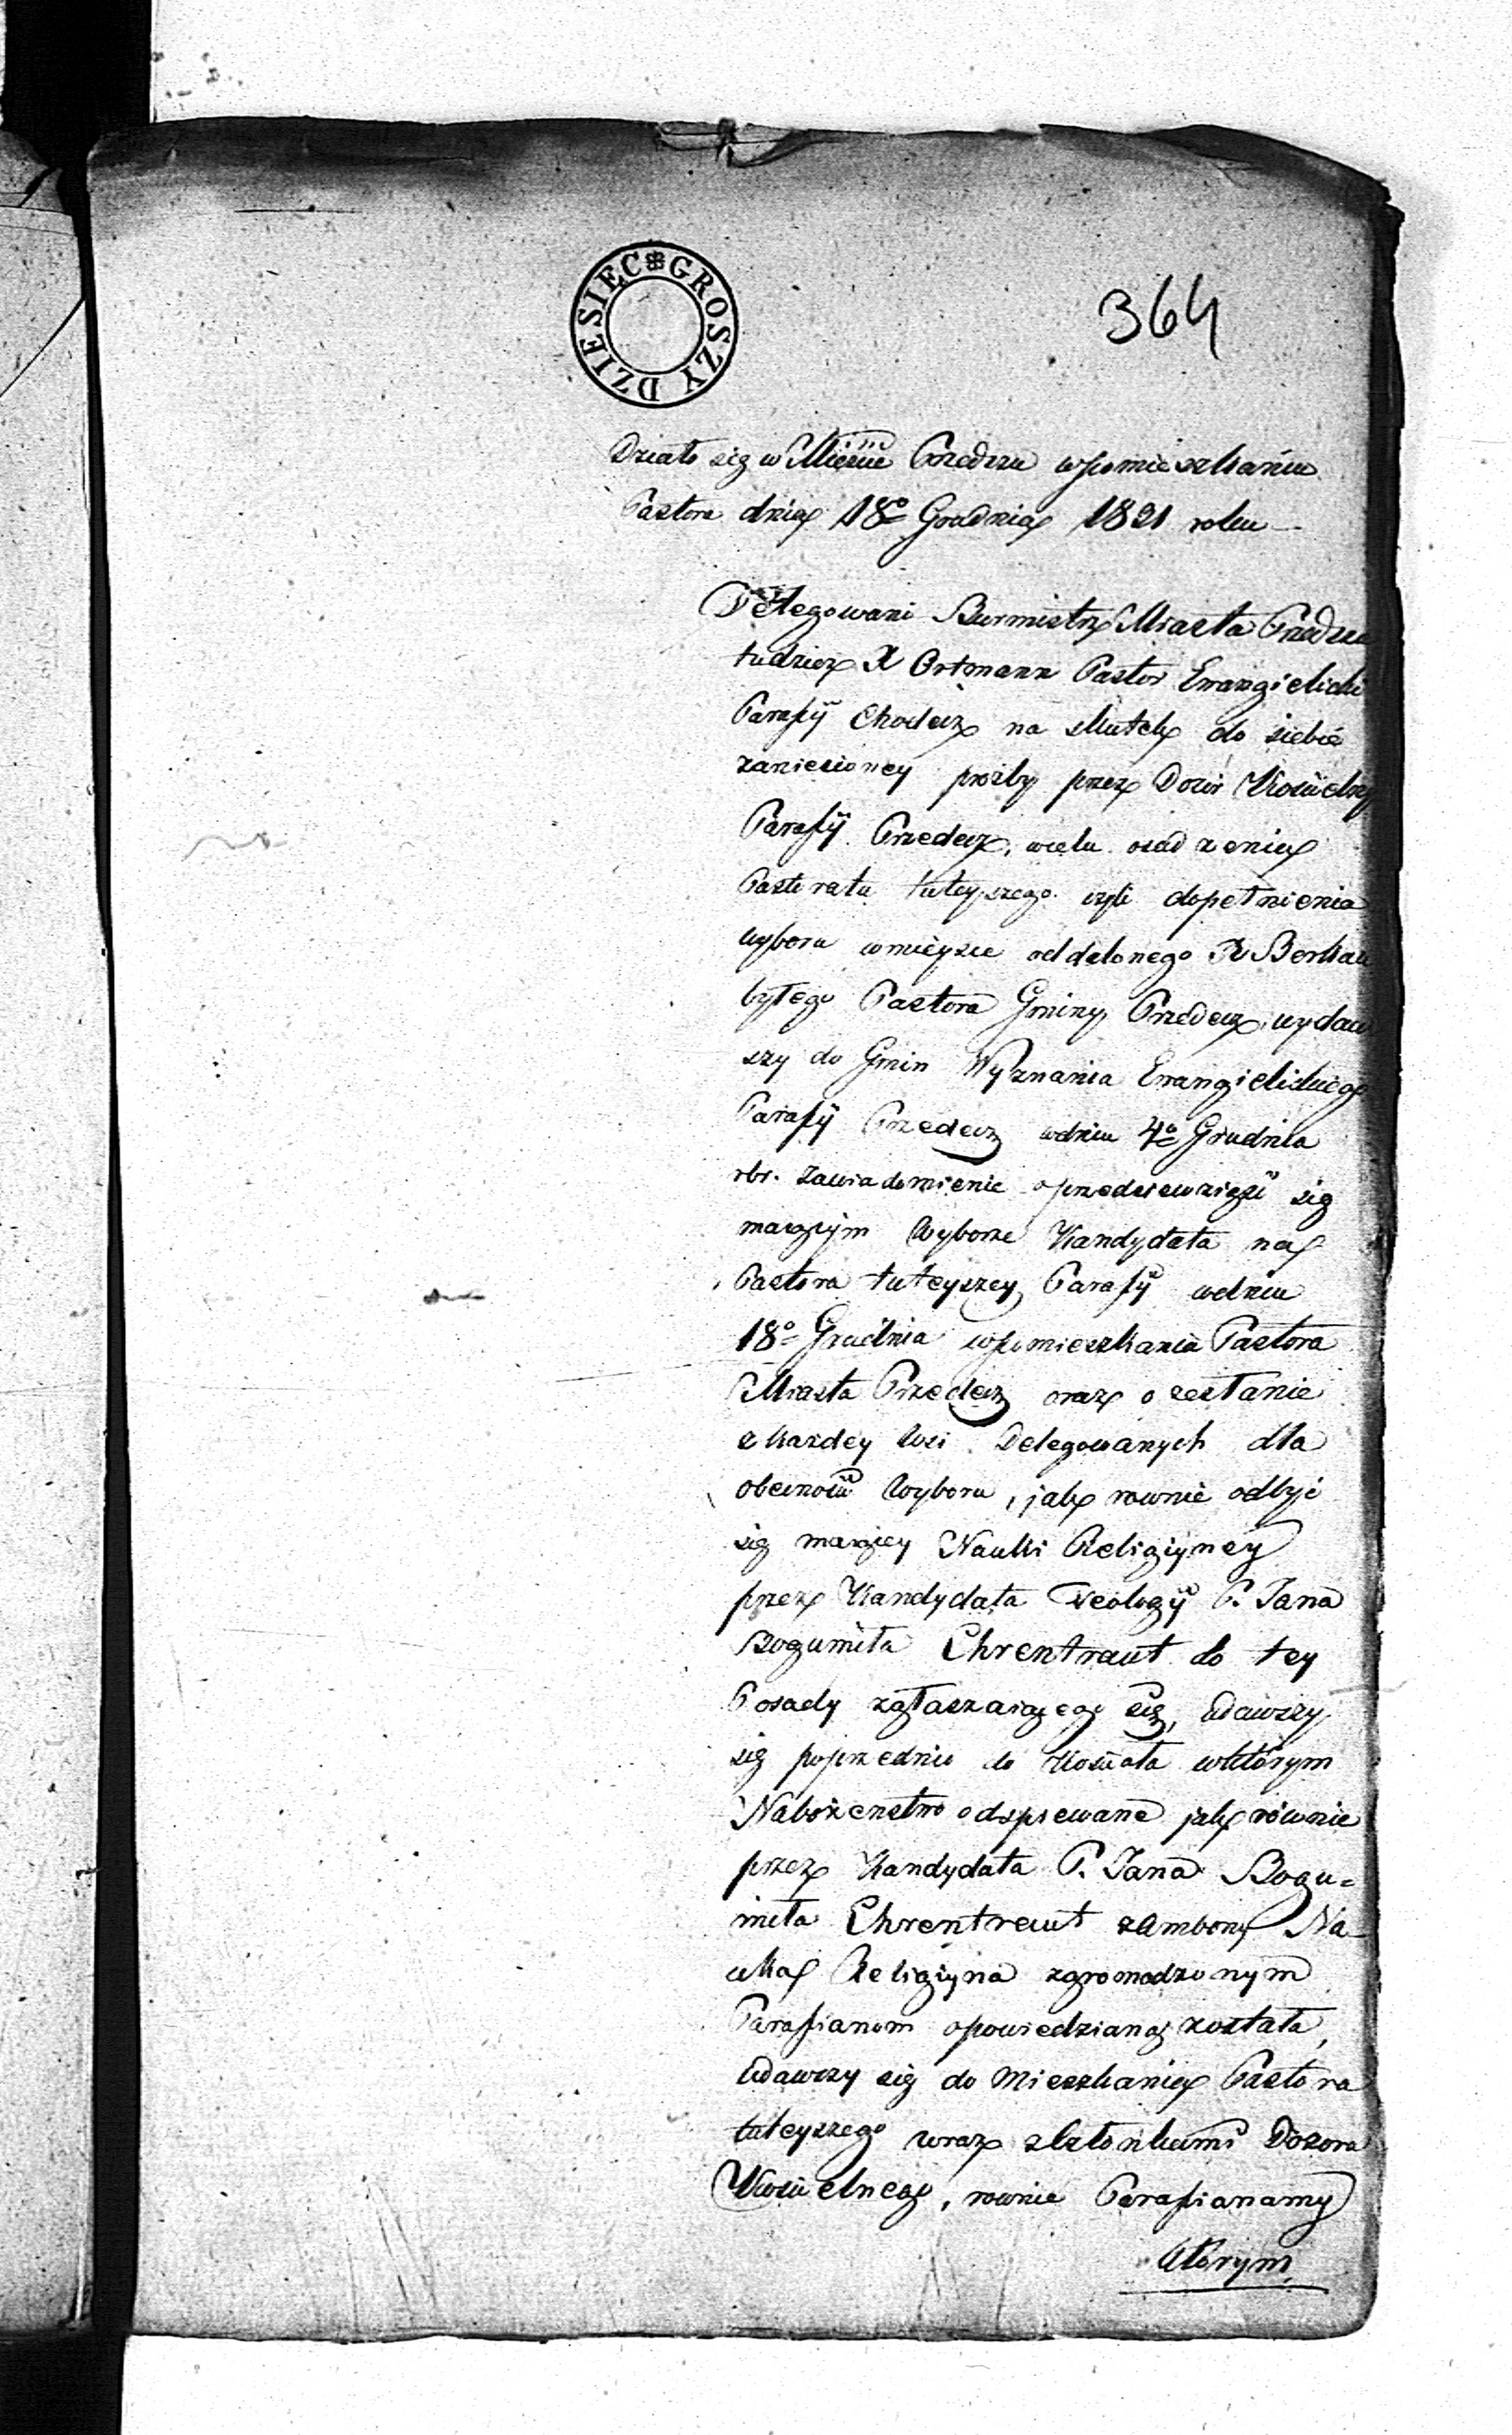 DZIESIĘĆ GROSZY
364
Działo się w Mieście Przedczu w pomieszkaniu
Pastora dnia 18º Grudnia 1821 roku
Delegowani Burmistrz Miasta Przedcza
tudzież X Ortmann Pastor Ewangielicki
Parafÿ Chodecz na skutek do siebie
zaniesioney prozby przez Dozór Kościelny
Parafÿ Przedecz, wcelu osadzenia
Pastoratu tuteyszego czyli dopełnienia
wyboru wmieysce oddalonego X Berkau
byłego Pastora Gminy Przedecz, wydaw
szy do Gmin Wyznania Ewangielickiego
Parafÿ Przedecz wdniu 4º Grudnia
rbr. zawiadomienie oprzedsiewziąść się
maiącym Wyborze Kandydata na
Pastora tuteyszey Parafÿ wdniu
18º Grudnia wpomieszkaniu Pastora
Miasta Przedecz oraz o zesłanie
z każdey Wsi Delegowanych dla
obecności Wyboru, jak rownie odbyć
się maiącey Nauki Religiyney
przez Kandydata Teologÿ P. Jana
Bogumiła Ehrentraut do tey
Posady zgłaszaiącego się, Udawszy
się poprzednio do Kościoła wktórym
Nabożenstwo odspiewane jak równie
przez Kandydata P. Jana Bogu=
miła Ehrentraut zambony Na
uka Religiyna zgromadzonym
Parafianom opowiedziana została,
Udawszy się do Mieszkania Pastora
tuteyszego wraz zCzłonkami Dozoru
Kościelnego, rownie Parafianamy
którym